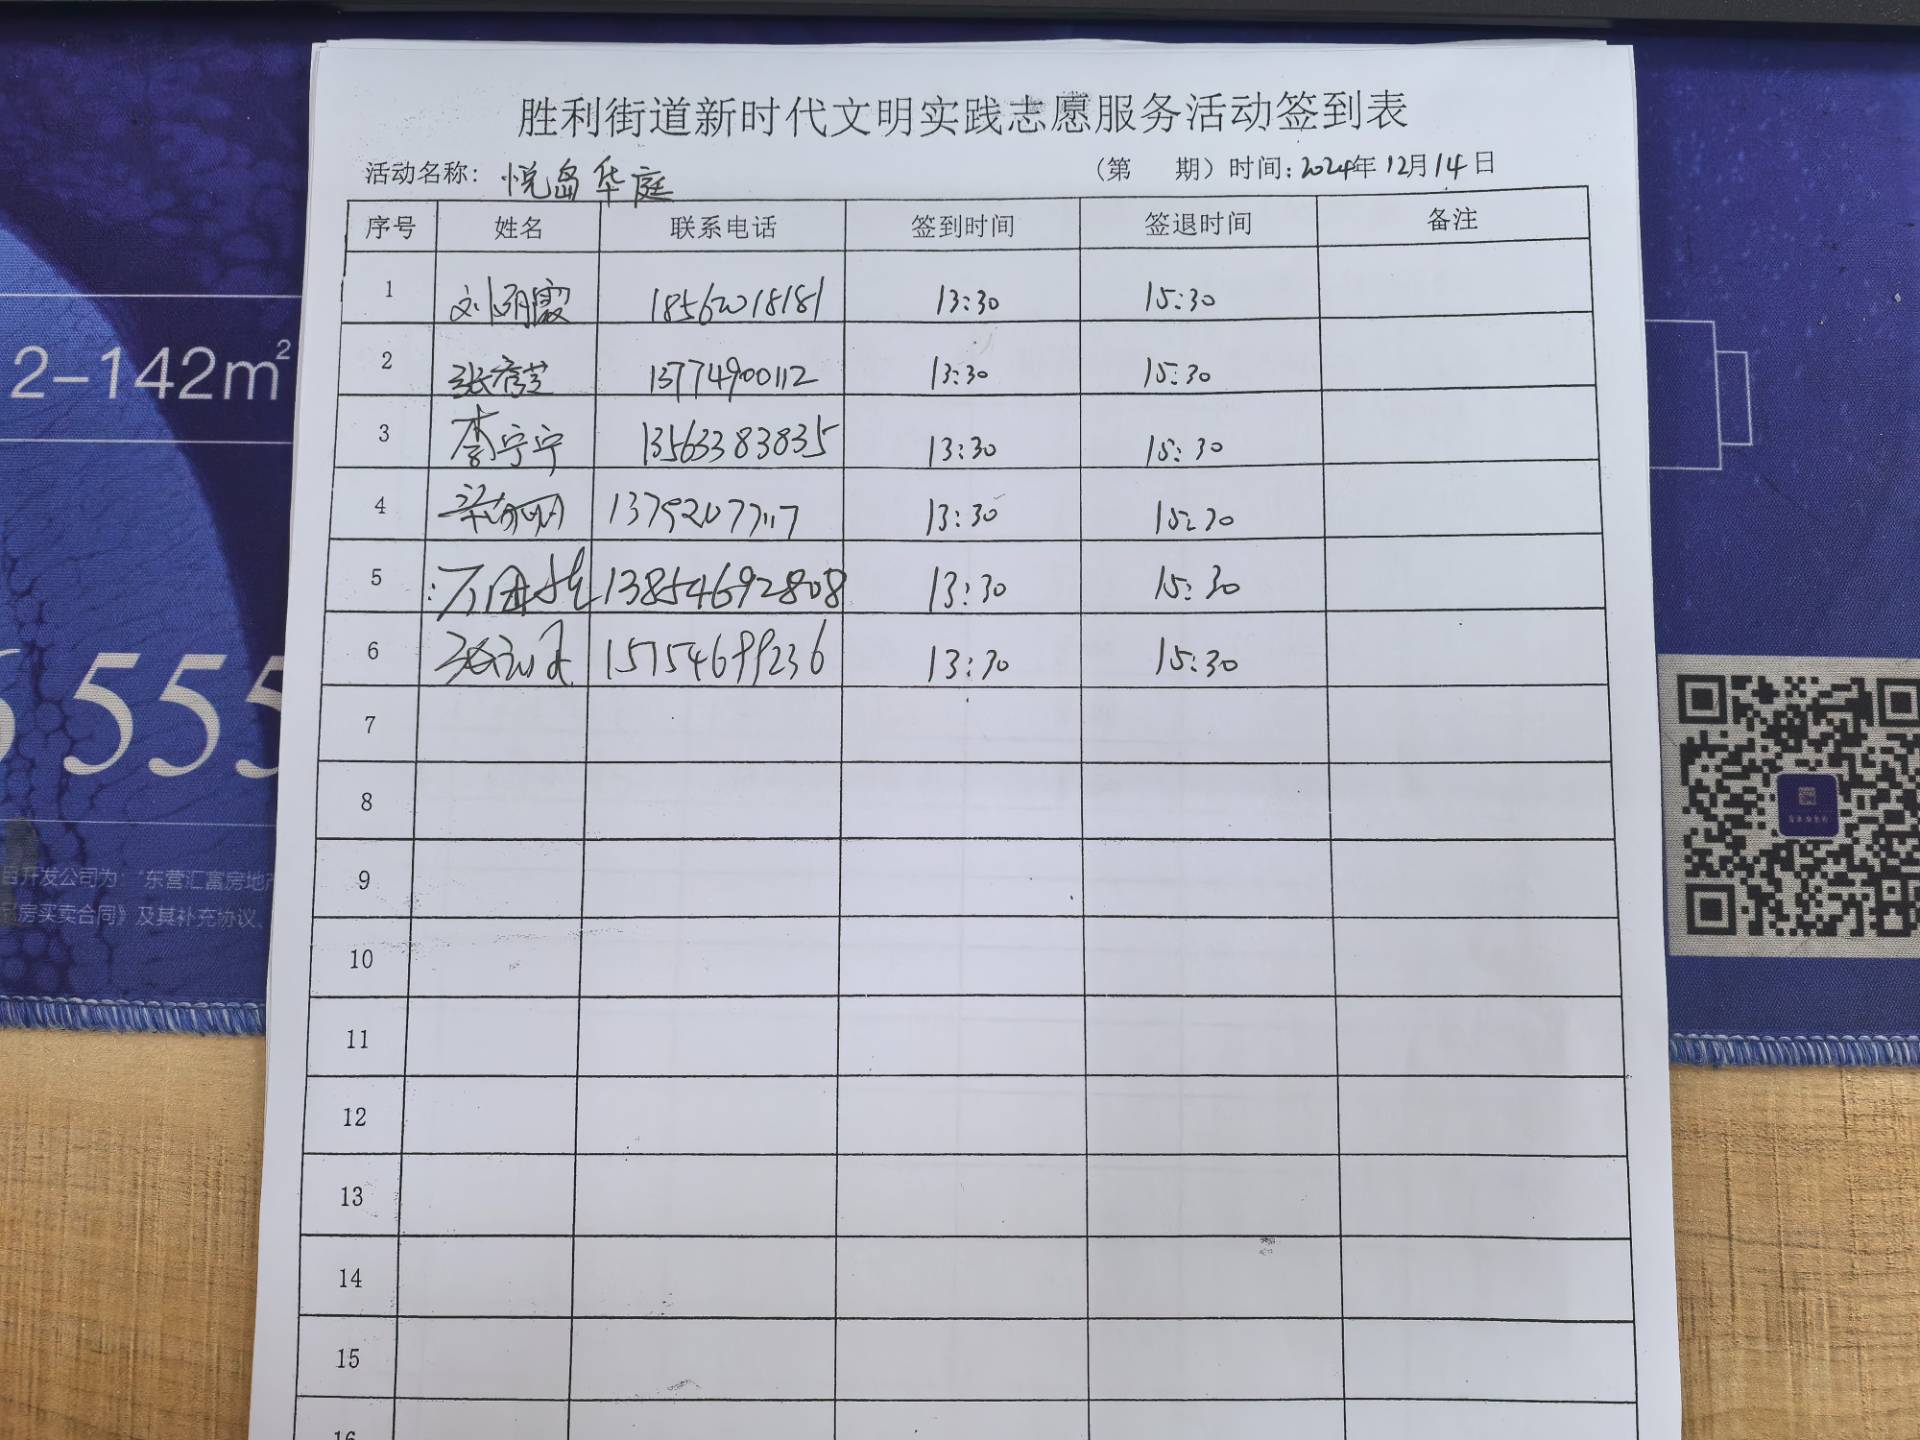 胜利街道新时代文明实践志愿服务活动签到表
活动名称: 悦岛华庭 (第 期) 时间: 2024年12月14日
序号 姓名 联系电话 签到时间 签退时间 备注
1 刘 霞 18562018181 13:30 15:30
2 张秀芝 13774900112 13:30 15:30
3 李宁宁 13563383835 13:30 15:30
4 13792077117 13:30 15:30
5 13854692808 13:30 15:30
6 15754699236 13:30 15:30
7
8
9
10
11
12
13
14
15
16
2-142m²
555
目开发公司为: "东营汇富房地产
品房买卖合同》及其补充协议、